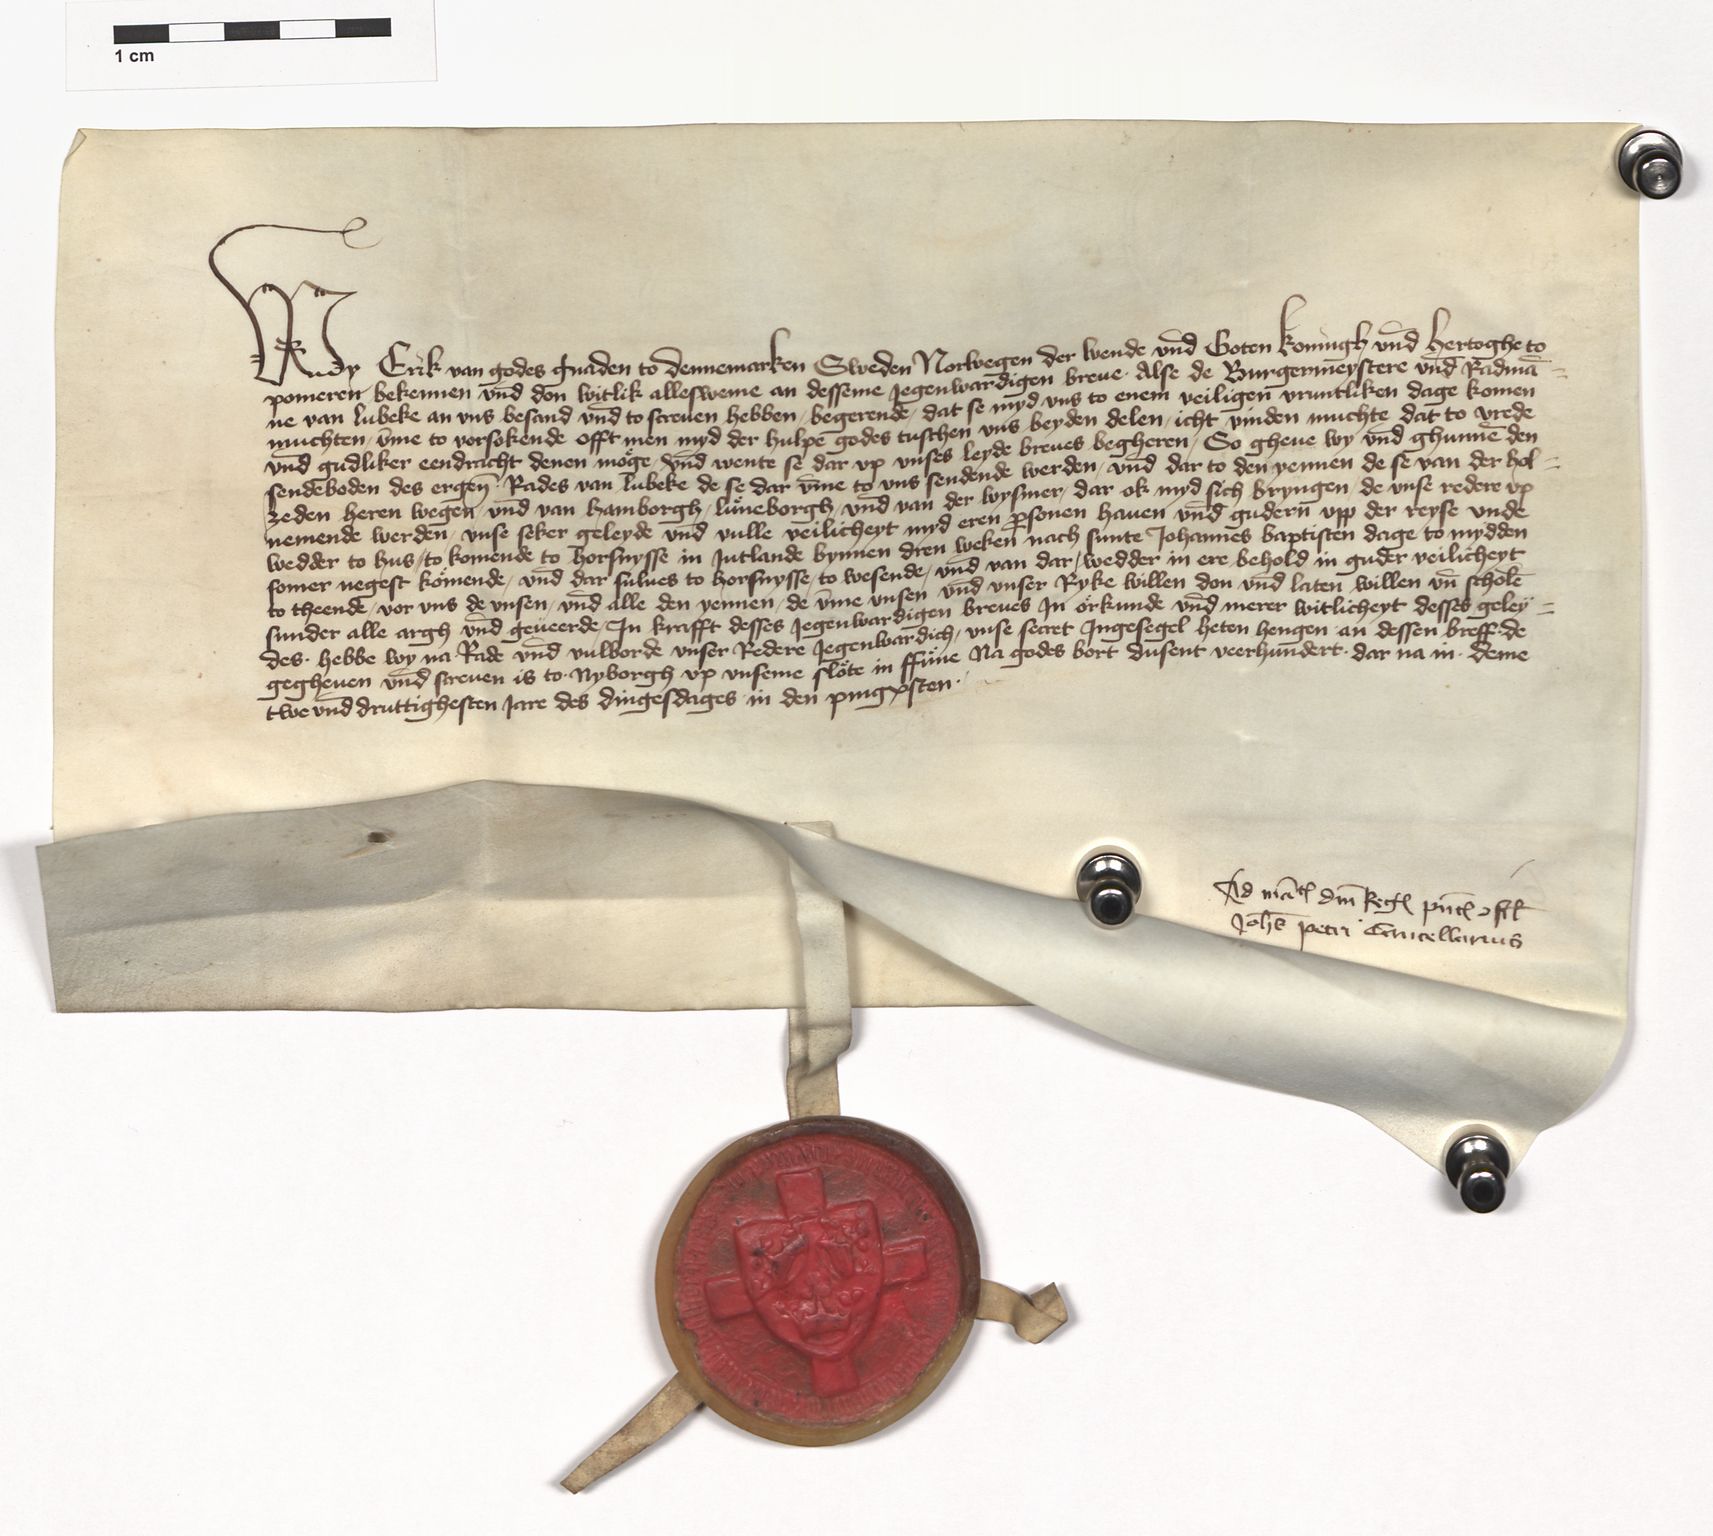 1 cm
Wy Erik van godes gnaden to dennemarken Sweden Norwegen der wende vnd Goten koningh vnd hertoghe to
pomeren bekennen vnd don witlik allesweme an desseme Jegenwardigen breue. Alse de Burgermeystere vnd Radmā=
ne van lubeke an vns besand vnd to screuen hebben, begerende, dat se myd vns to enem veiligen vruntliken dage komen
muchten, vm̄e to vorsokende offt men myd der hulpe godes tuschen vns beyden delen, icht vinden muchte dat to vrede
vnd gudliker eendracht denen moge, vnd wente se dar vp vnses leyde breues begheren, So gheue wy vnd ghunnē den
sendēboden des ergen̄. Rades van lubeke de se dar vm̄e to vns sendende werden, vnd dar to den yennen de se van der hol=
zeden heren wegen vnd van hamborgh, luneborgh, vnd van der wysmer, dar ok myd sich bryngen, de vnse redere vp
nemende werden, vnse seker geleyde vnd vulle veilicheyt myd eren ꝑsonen hauen vnd gudern vpp der reyse vnde
wedder to hus, to komende to horsnysse in Jutlande bynnen dren weken nach sunte Johannes baptisten dage to mydden
somer negest komende, vnd dar sulues to horsnysse, to wesende, vnd van dar, wedder in ere behold in guder veilicheyt
to theende, vor vns de vnsen, vnd alle den yennen, de vm̄e vnsen vnd vnser Ryke willen don vnd laten willen vn̄ scholē
sunder alle argh vnd geueerde, In krafft desses Jegenwardigen breues In orkunde vnd merer witlicheyt desses geley=
des. hebbe wy na Rade vnd vulborde vnser Redere Jegenwardich, vnse secret Ingesegel heten hengen an dessen breff. de
gegheuen vnd screuen is to. Nyborgh vp vnseme slote in ffune Na godes bort dusent veerhundert. dar na in. deme
twe vnd druttighesten Jare des dingesdages in den pingxsten.
Ad
Johēs petri Cancellarius